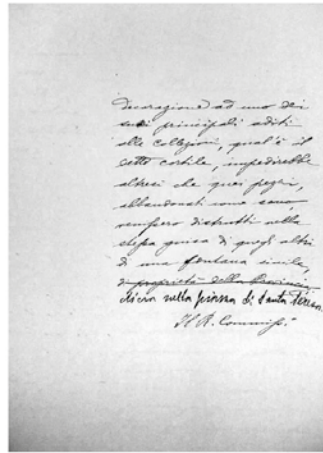 decorazione ad uno dei
suoi principali aditi
alle collezioni, qual'è il
detto cortile, impedirebbe
altresì che quei pezzi,
abbandonati come sono,
venissero distrutti nella
stessa guisa di quegli altri
di una fontana simile,
di proprietà della Provincia
nella piazza di Santa Teresa.
Il R. Commiss.°